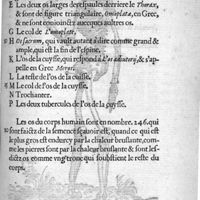 E Les deux os larges des espaules derriere le Thorax,
& sont de figure triangulaire, Omoplata, en Grec,
& ne sont conioincts aucuns autres os.
G Le col de l'
H Os sacrum, qui vault autant à dire comme grand &
ample, qui est la fin de l'espine.
K L'os de la cuysse, qui respond à l'os adiutorij, & s'ap-
pelle en Grec Meros.
L La teste de l'os de la cuisse.
M Le col de l'os de la cuysse.
N Trochanter.
P Les deux tubercules de l'os de la cuysse.
Les os du corps humain sont en nombre. 246. qui
sont faictz de la semence sçauoir est, quand ce qui est
le plus gros est endurcy par la chaleur bruslante, com-
mes les pierres sont par la chaleur bruslante & sont les-
dictz os comme vng tronc qui soubstient le reste du
corps.